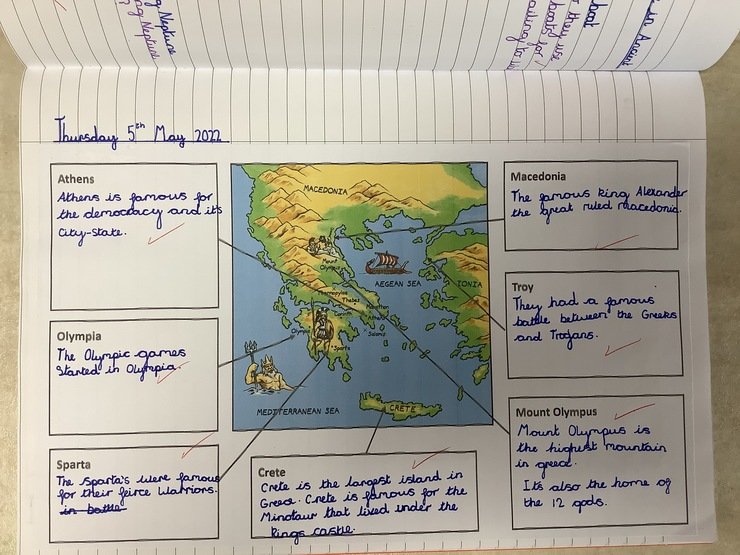 Thursday 5th May 2022
Athens
Athens is famous for
the democracy and it's
City-state.
Olympia
The Olympic games
started in Olympia.
Sparta
The Sparta's were famous
for their feirce warriors.
in battle
MACEDONIA
Mount
Olympus
AEGEAN SEA
IONIA
Thermopylae
Thebes
Marathon
Athens
Salamis
Corinth
Olympia
Sparta
MEDITERRANEAN SEA
CRETE
Crete
Crete is the largest island in
Greece. Crete is famous for the
Minotaur that lived under the
kings castle.
Macedonia
The famous king Alexander
the great ruled macedonia.
Troy
They had a famous
battle between the Greeks
and Trojans.
Mount Olympus
Mount Olympus is
the highest mountain
in greece.
Its also the home of
the 12 gods.